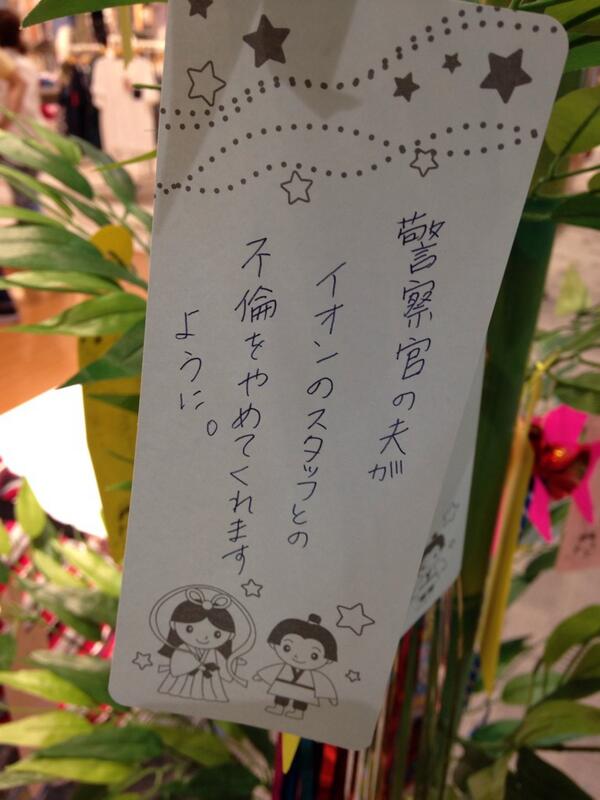 警察官の夫が
イオンのスタッフとの
不倫をやめてくれます
ように。